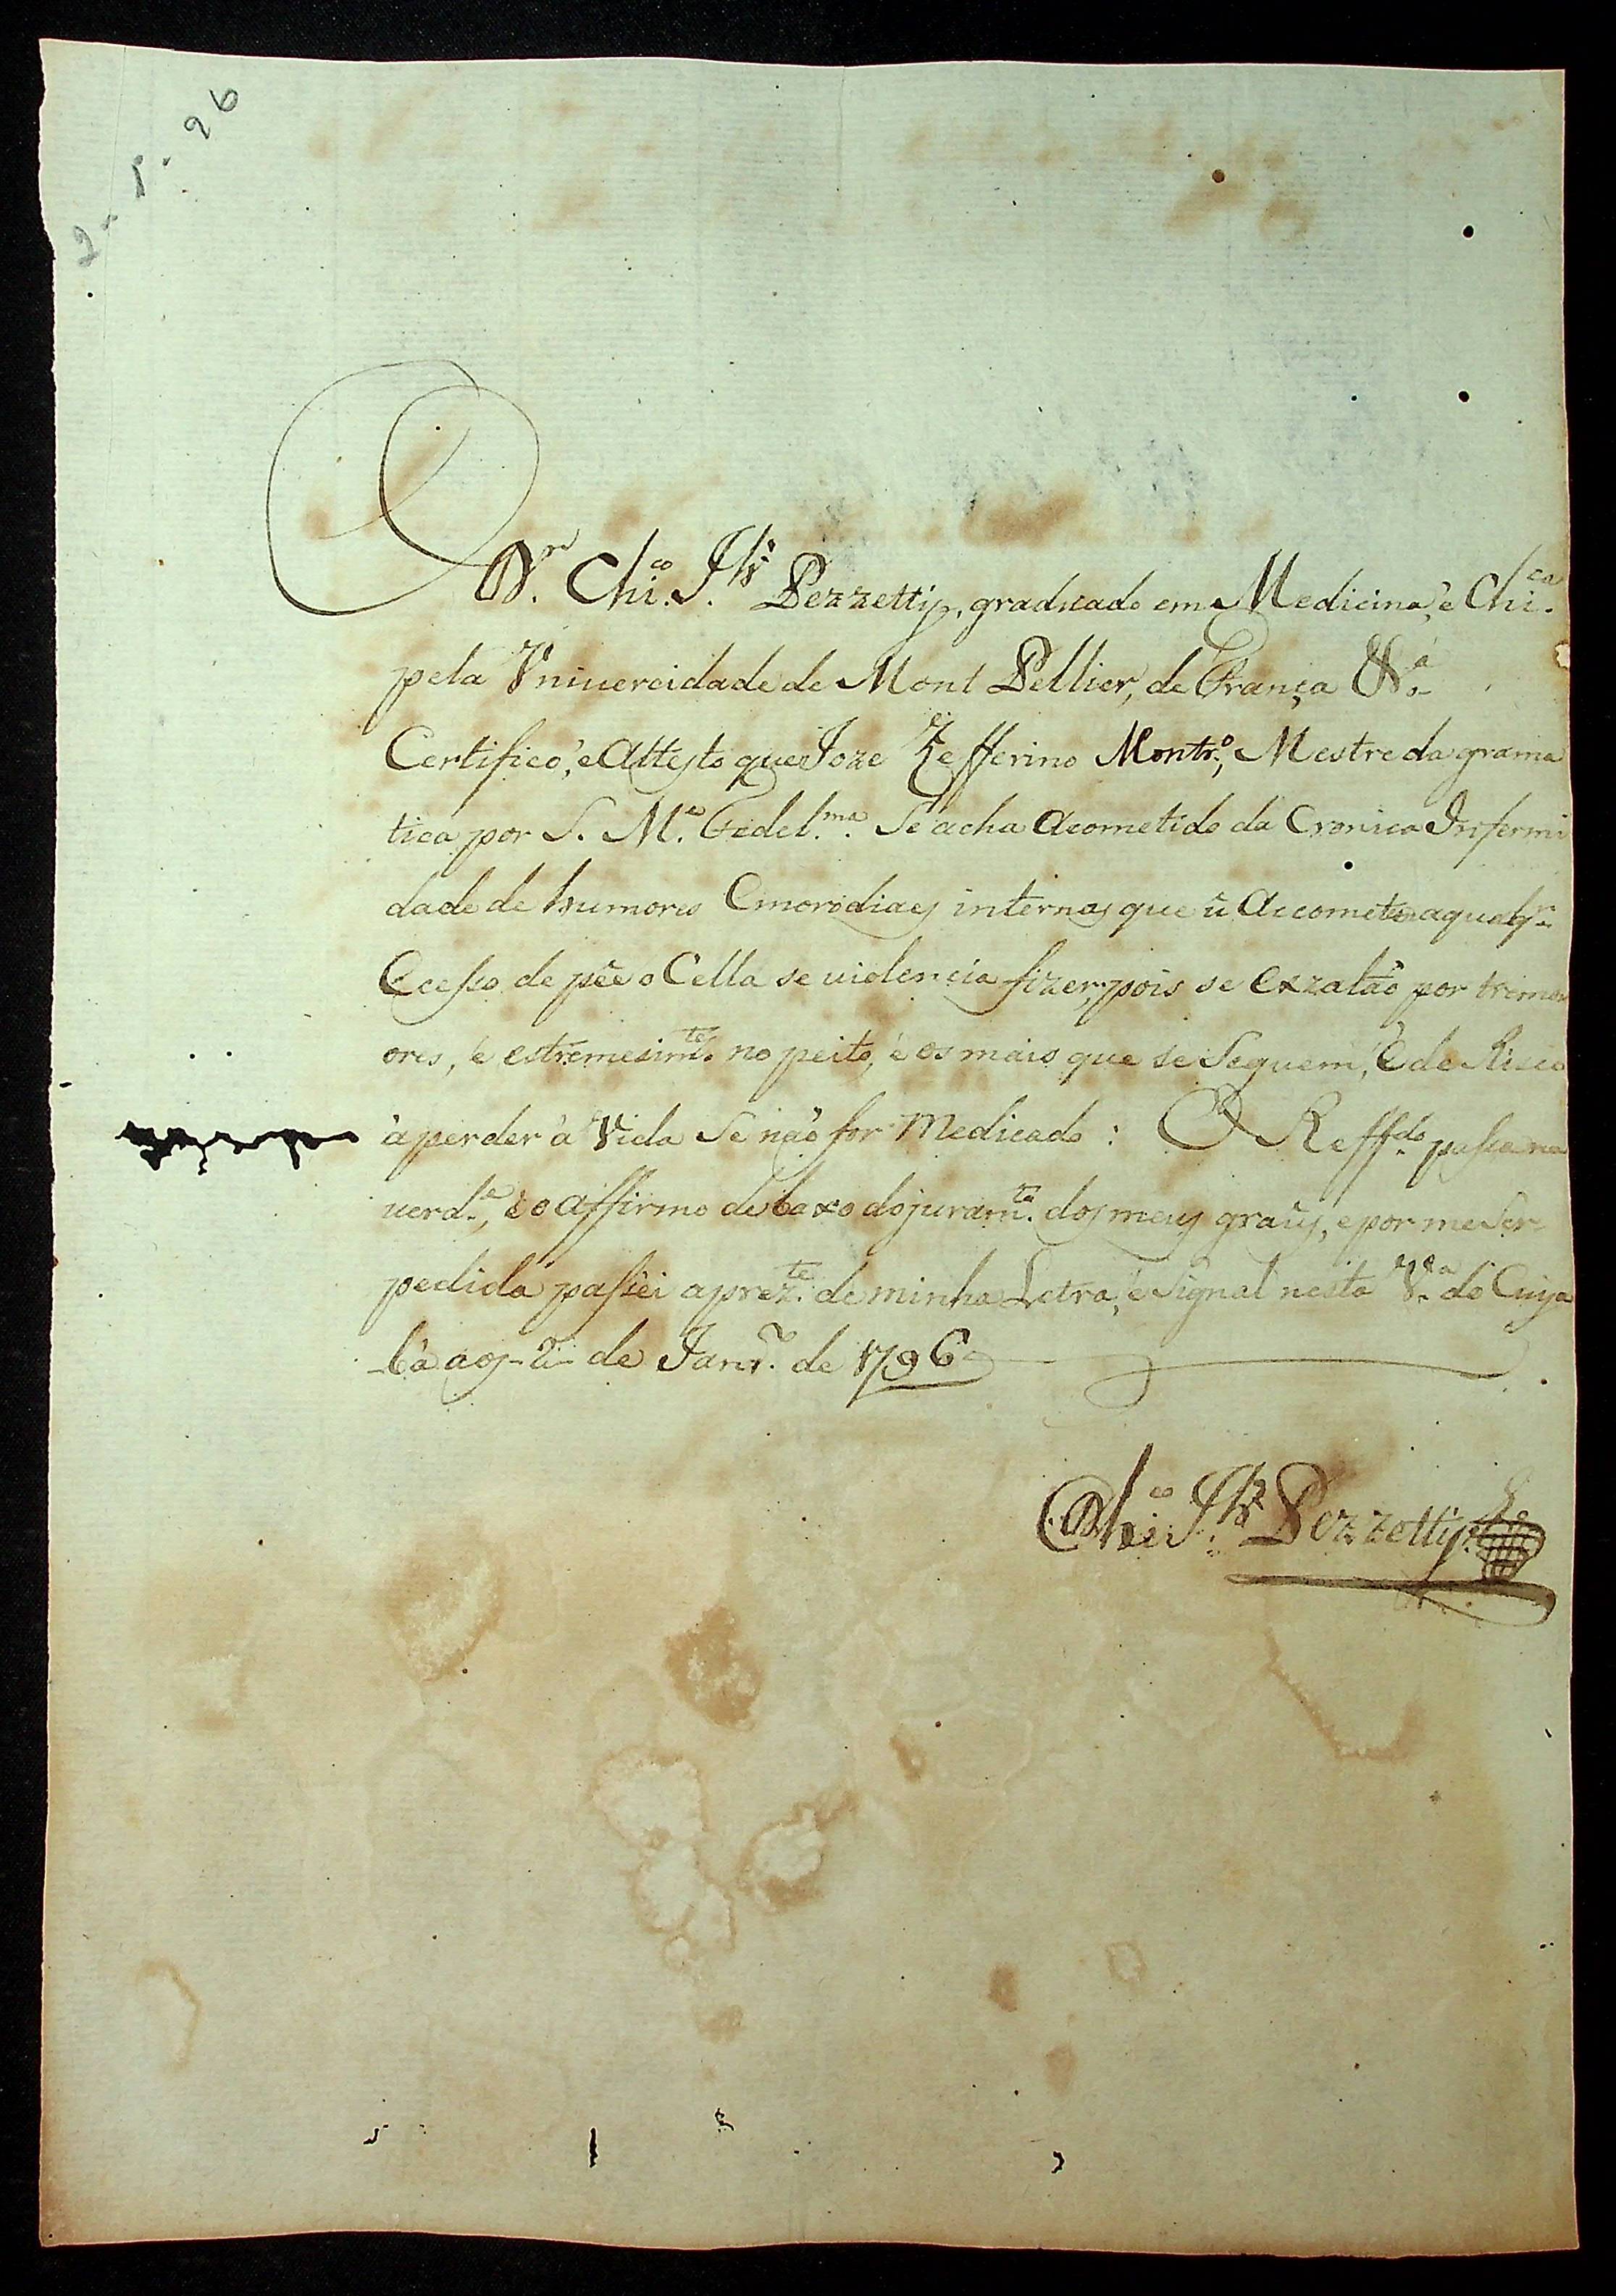 2-1-96
O Dr. Chi.co J.hs Pezzettÿ, graduado em Medicina, e Chi.ca
pela Vnivercidade de Mont Pellier, de França &.a
Certifico, e Attesto que Joze Zefferino Montr.o, Mestre da grama
tica por S. M.e Fedel.ma Se acha Acometido da Cronica Infermi
dade de humores Emorodiaes internas que
Ecesso de pée o Cella se violencia fizer, pois se exzalão por tremor
ores, e estremesim.te no peito, e os mais que se Seguem, E de Risco
à perder à Vida Se não for Medicado : O Reff.do passa na
verd.e, e o affirmo debaxo do juram.to dos meus graüs, e por me Ser
pedida passei a prez.te de minha Letra, e Signal nesta V.a do Cuya
bá aos -2- de Janr.o de 1796
Chi.co J.hs Pezzettÿ